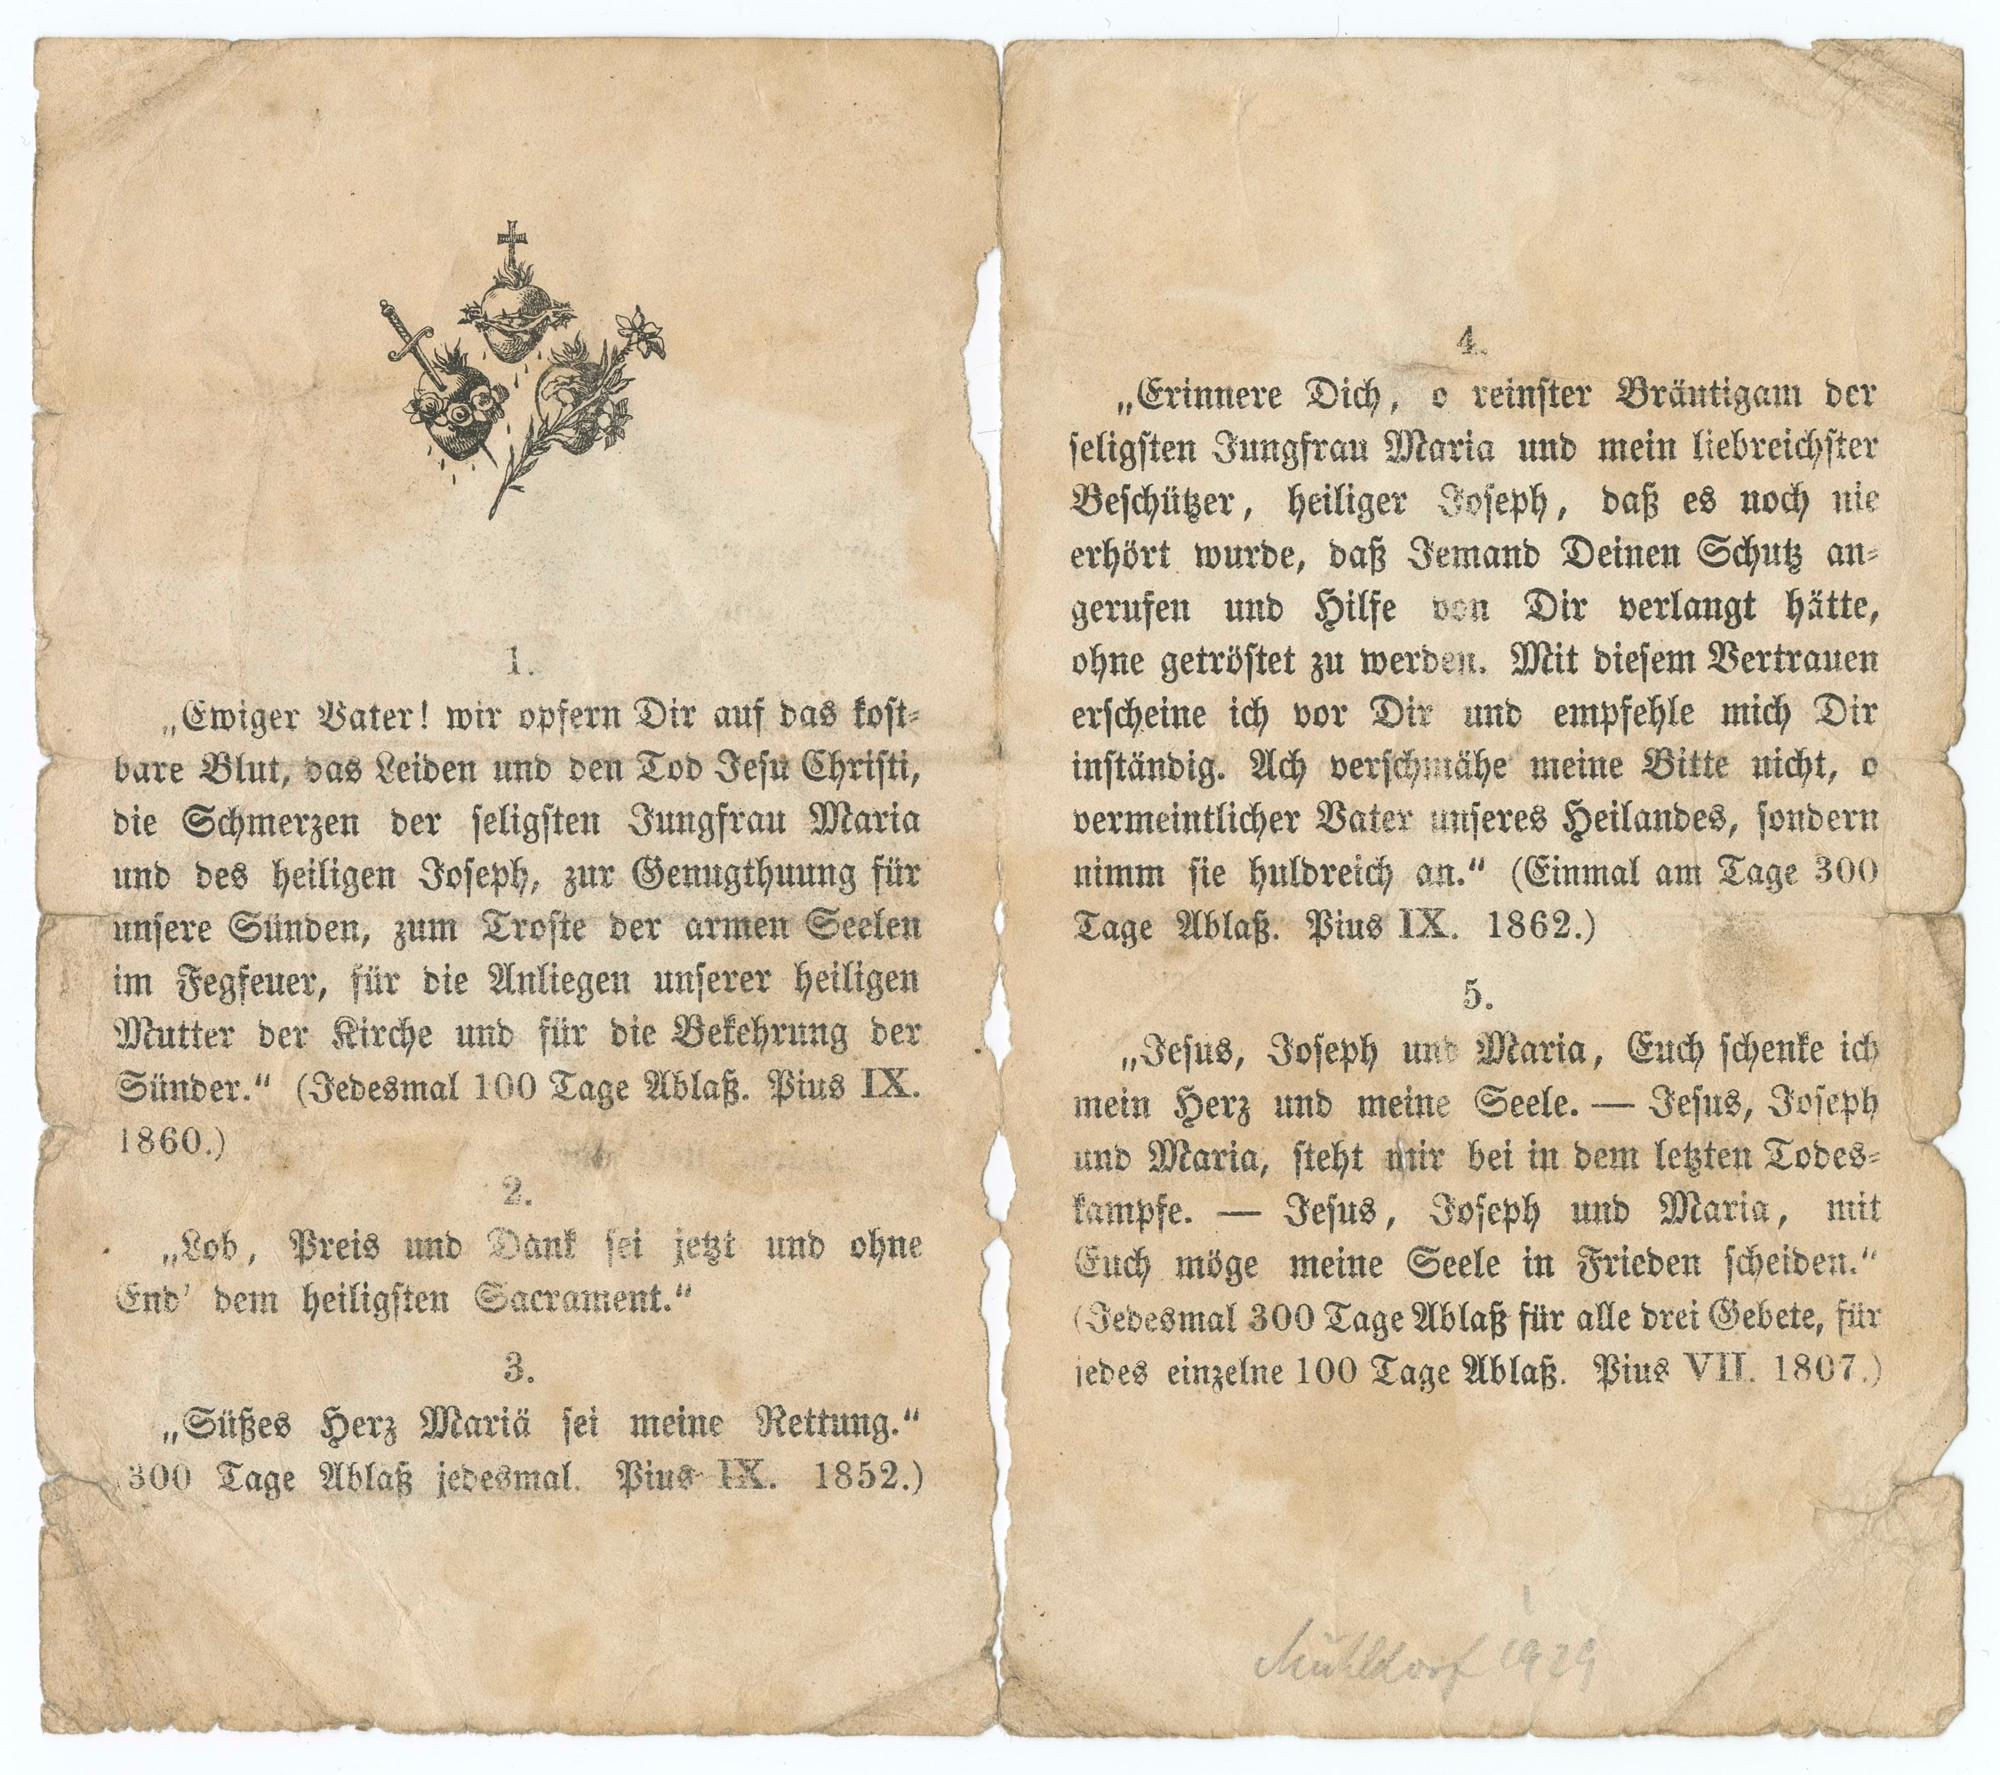 1.
„Ewiger Vater! wir opfern Dir auf das kost-
bare Blut, das Leiden und den Tod Jesu Christi,
die Schmerzen der seligsten Jungfrau Maria
und des heiligen Joseph, zur Genugthuung für
unsere Sünden, zum Troste der armen Seelen
im Fegfeuer, für die Anliegen unserer heiligen
Mutter der Kirche und für die Bekehrung der
Sünder.“ (Jedesmal 100 Tage Ablaß. Pius IX.
1860.)
2.
„Lob, Preis und Dank sei jetzt und ohne
End’ dem heiligsten Sacrament.“
3.
„Süßes Herz Mariä sei meine Rettung.“
(300 Tage Ablaß jedesmal. Pius IX. 1852.)
4.
„Erinnere Dich, o reinster Bräutigam der
seligsten Jungfrau Maria und mein liebreichster
Beschützer, heiliger Joseph, daß es noch nie
erhört wurde, daß Jemand Deinen Schutz an-
gerufen und Hilfe von Dir verlangt hätte,
ohne getröstet zu werden. Mit diesem Vertrauen
erscheine ich vor Dir und empfehle mich Dir
inständig. Ach verschmähe meine Bitte nicht, o
vermeintlicher Vater unseres Heilandes, sondern
nimm sie huldreich an.“ (Einmal am Tage 300
Tage Ablaß. Pius IX. 1862.)
5.
„Jesus, Joseph und Maria, Euch schenke ich
mein Herz und meine Seele. — Jesus, Joseph
und Maria, steht mir bei in dem letzten Todes-
kampfe. — Jesus, Joseph und Maria, mit
Euch möge meine Seele in Frieden scheiden.“
(Jedesmal 300 Tage Ablaß für alle drei Gebete, für
jedes einzelne 100 Tage Ablaß. Pius VII. 1807.)
Mühldorf 1929